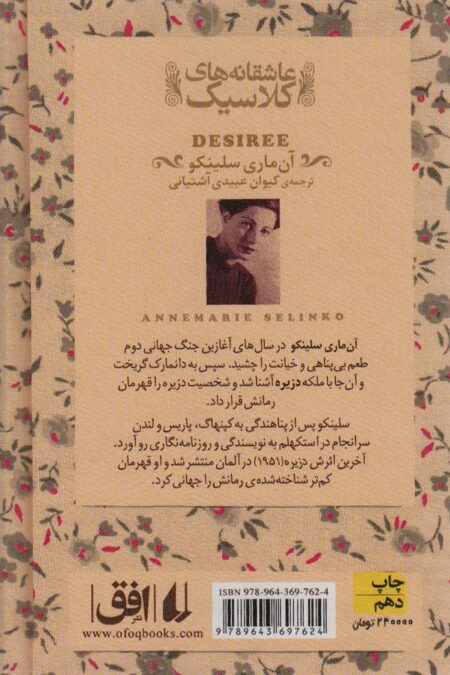 عاشقانه‌های
کلاسیک
DESIREE
آن‌ماری سلینکو
ترجمه‌ی کیوان عبیدی آشتیانی
ANNEMARIE SELINKO
آن‌ماری سلینکو در سال‌های آغازین جنگ جهانی دوم
طعم بی‌پناهی و خیانت را چشید. سپس به دانمارک گریخت
و آن‌جا با ملکه دزیره آشنا شد و شخصیت دزیره را قهرمان
رمانش قرار داد.
سلینکو پس از پناهندگی به کپنهاگ، پاریس و لندن
سرانجام در استکهلم به نویسندگی و روزنامه‌نگاری رو آورد.
آخرین اثرش دزیره (۱۹۵۱) در آلمان منتشر شد و او قهرمان
کم‌تر شناخته‌شده‌ی رمانش را جهانی کرد.
نشر افق
www.ofoqbooks.com
ISBN 978-964-369-762-4
9 789643 697624
چاپ
دهم
۲۴۰۰۰۰ تومان